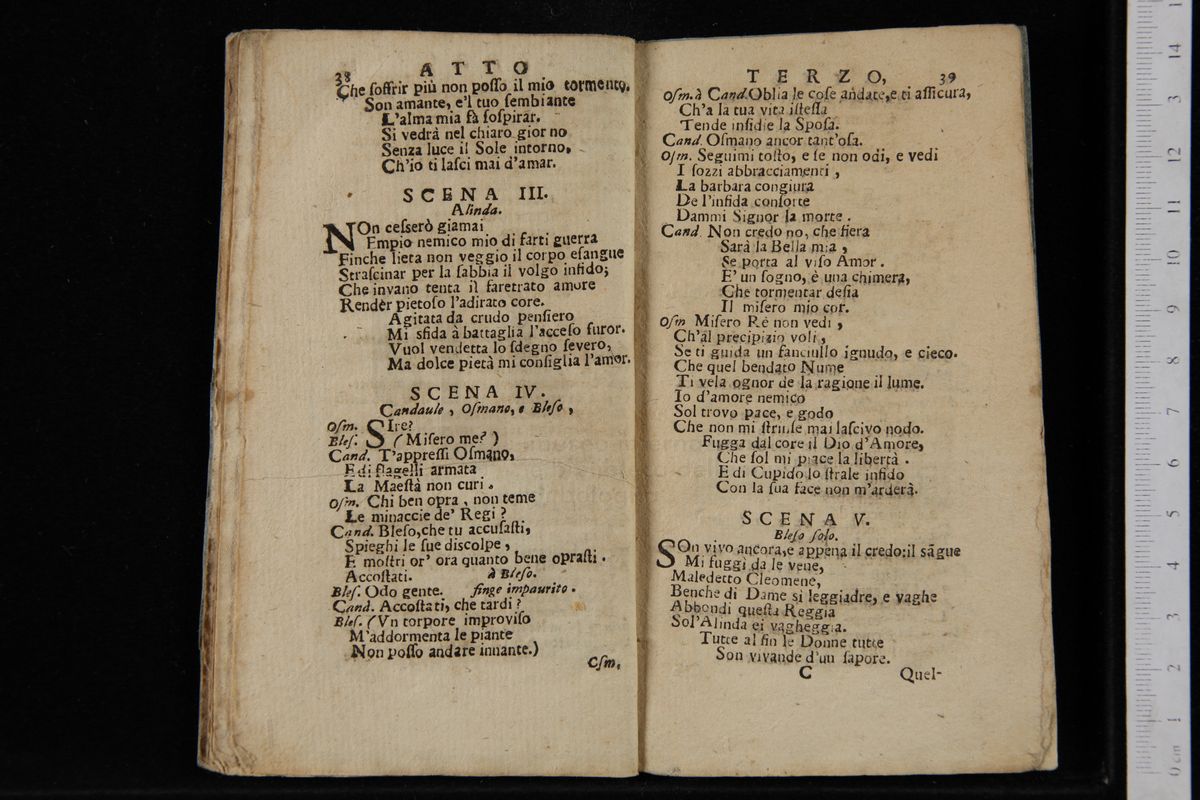 38 ATTO
Che ſoffrir più non poſſo il mio tormento.
Son amante, e'l tuo ſembiante
L'alma mia fà ſoſpirar.
Si vedrà nel chiaro giorno
Senza luce il Sole intorno,
Ch'io ti laſci mai d'amar.
SCENA III.
Alinda.
NOn ceſserò giamai
Empio nemico mio di farti guerra
Finche lieta non veggio il corpo eſangue
Straſcinar per la ſabbia il volgo infido;
Che invano tenta il faretrato amore
Rendèr pietoſo l'adirato core.
Agitata da crudo penſiero
Mi sfida à battaglia l'acceſo furor.
Vuol vendetta lo ſdegno ſevero,
Ma dolce pietà mi conſiglia l'amor.
SCENA IV.
Candaule, Oſmano, e Bleſo,
Oſm. SIre?
Bleſ. (Miſero me?)
Cand. T'appreſſi Oſmano,
E di flagelli armata
La Maeſtà non curi.
Oſm. Chi ben opra, non teme
Le minaccie de' Regi?
Cand. Bleſo, che tu accuſaſti,
Spieghi le ſue diſcolpe,
E moſtri or' ora quanto bene opraſti.
Accoſtati. à Bleſo.
Bleſ. Odo gente. finge impaurito.
Cand. Accoſtati, che tardi?
Bleſ. (Vn torpore improviſo
M'addormenta le piante
Non poſſo andare innante.)
Cſm.
TERZO, 39
Oſm. à Cand. Oblia le coſe andate, e ti aſſicura,
Ch'a la tua vita iſteſſa
Tende inſidie la Spoſa.
Cand. Oſmano ancor tant'oſa.
Oſm. Seguimi toſto, e ſe non odi, e vedi
I ſozzi abbracciamenti,
La barbara congiura
De l'infida conſorte
Dammi Signor la morte.
Cand. Non credo no, che fiera
Sarà la Bella mia,
Se porta al viſo Amor.
E' un ſogno, è una chimera,
Che tormentar deſia
Il miſero mio cor.
Oſm Miſero Rè non vedi,
Ch'al precipizio voli,
Se ti guida un fanciullo ignudo, e cieco.
Che quel bendato Nume
Ti vela ognor de la ragione il lume.
Io d'amore nemico
Sol trovo pace, e godo
Che non mi ſtrinſe mai laſcivo nodo.
Fugga dal core il Dio d'Amore,
Che ſol mi piace la libertà.
E di Cupido lo ſtrale infido
Con la ſua face non m'arderà.
SCENA V.
Bleſo ſolo.
SOn vivo ancora, e appena il credo: il sãgue
Mi fuggì da le vene,
Maledetto Cleomene,
Benche di Dame sì leggiadre, e vaghe
Abbondi queſta Reggia
Sol'Alinda ei vagheggia.
Tutte al fin le Donne tutte
Son vivande d'un ſapore.
C Quel-
0 cm 1 2 3 4 5 6 7 8 9 10 11 12 13 14